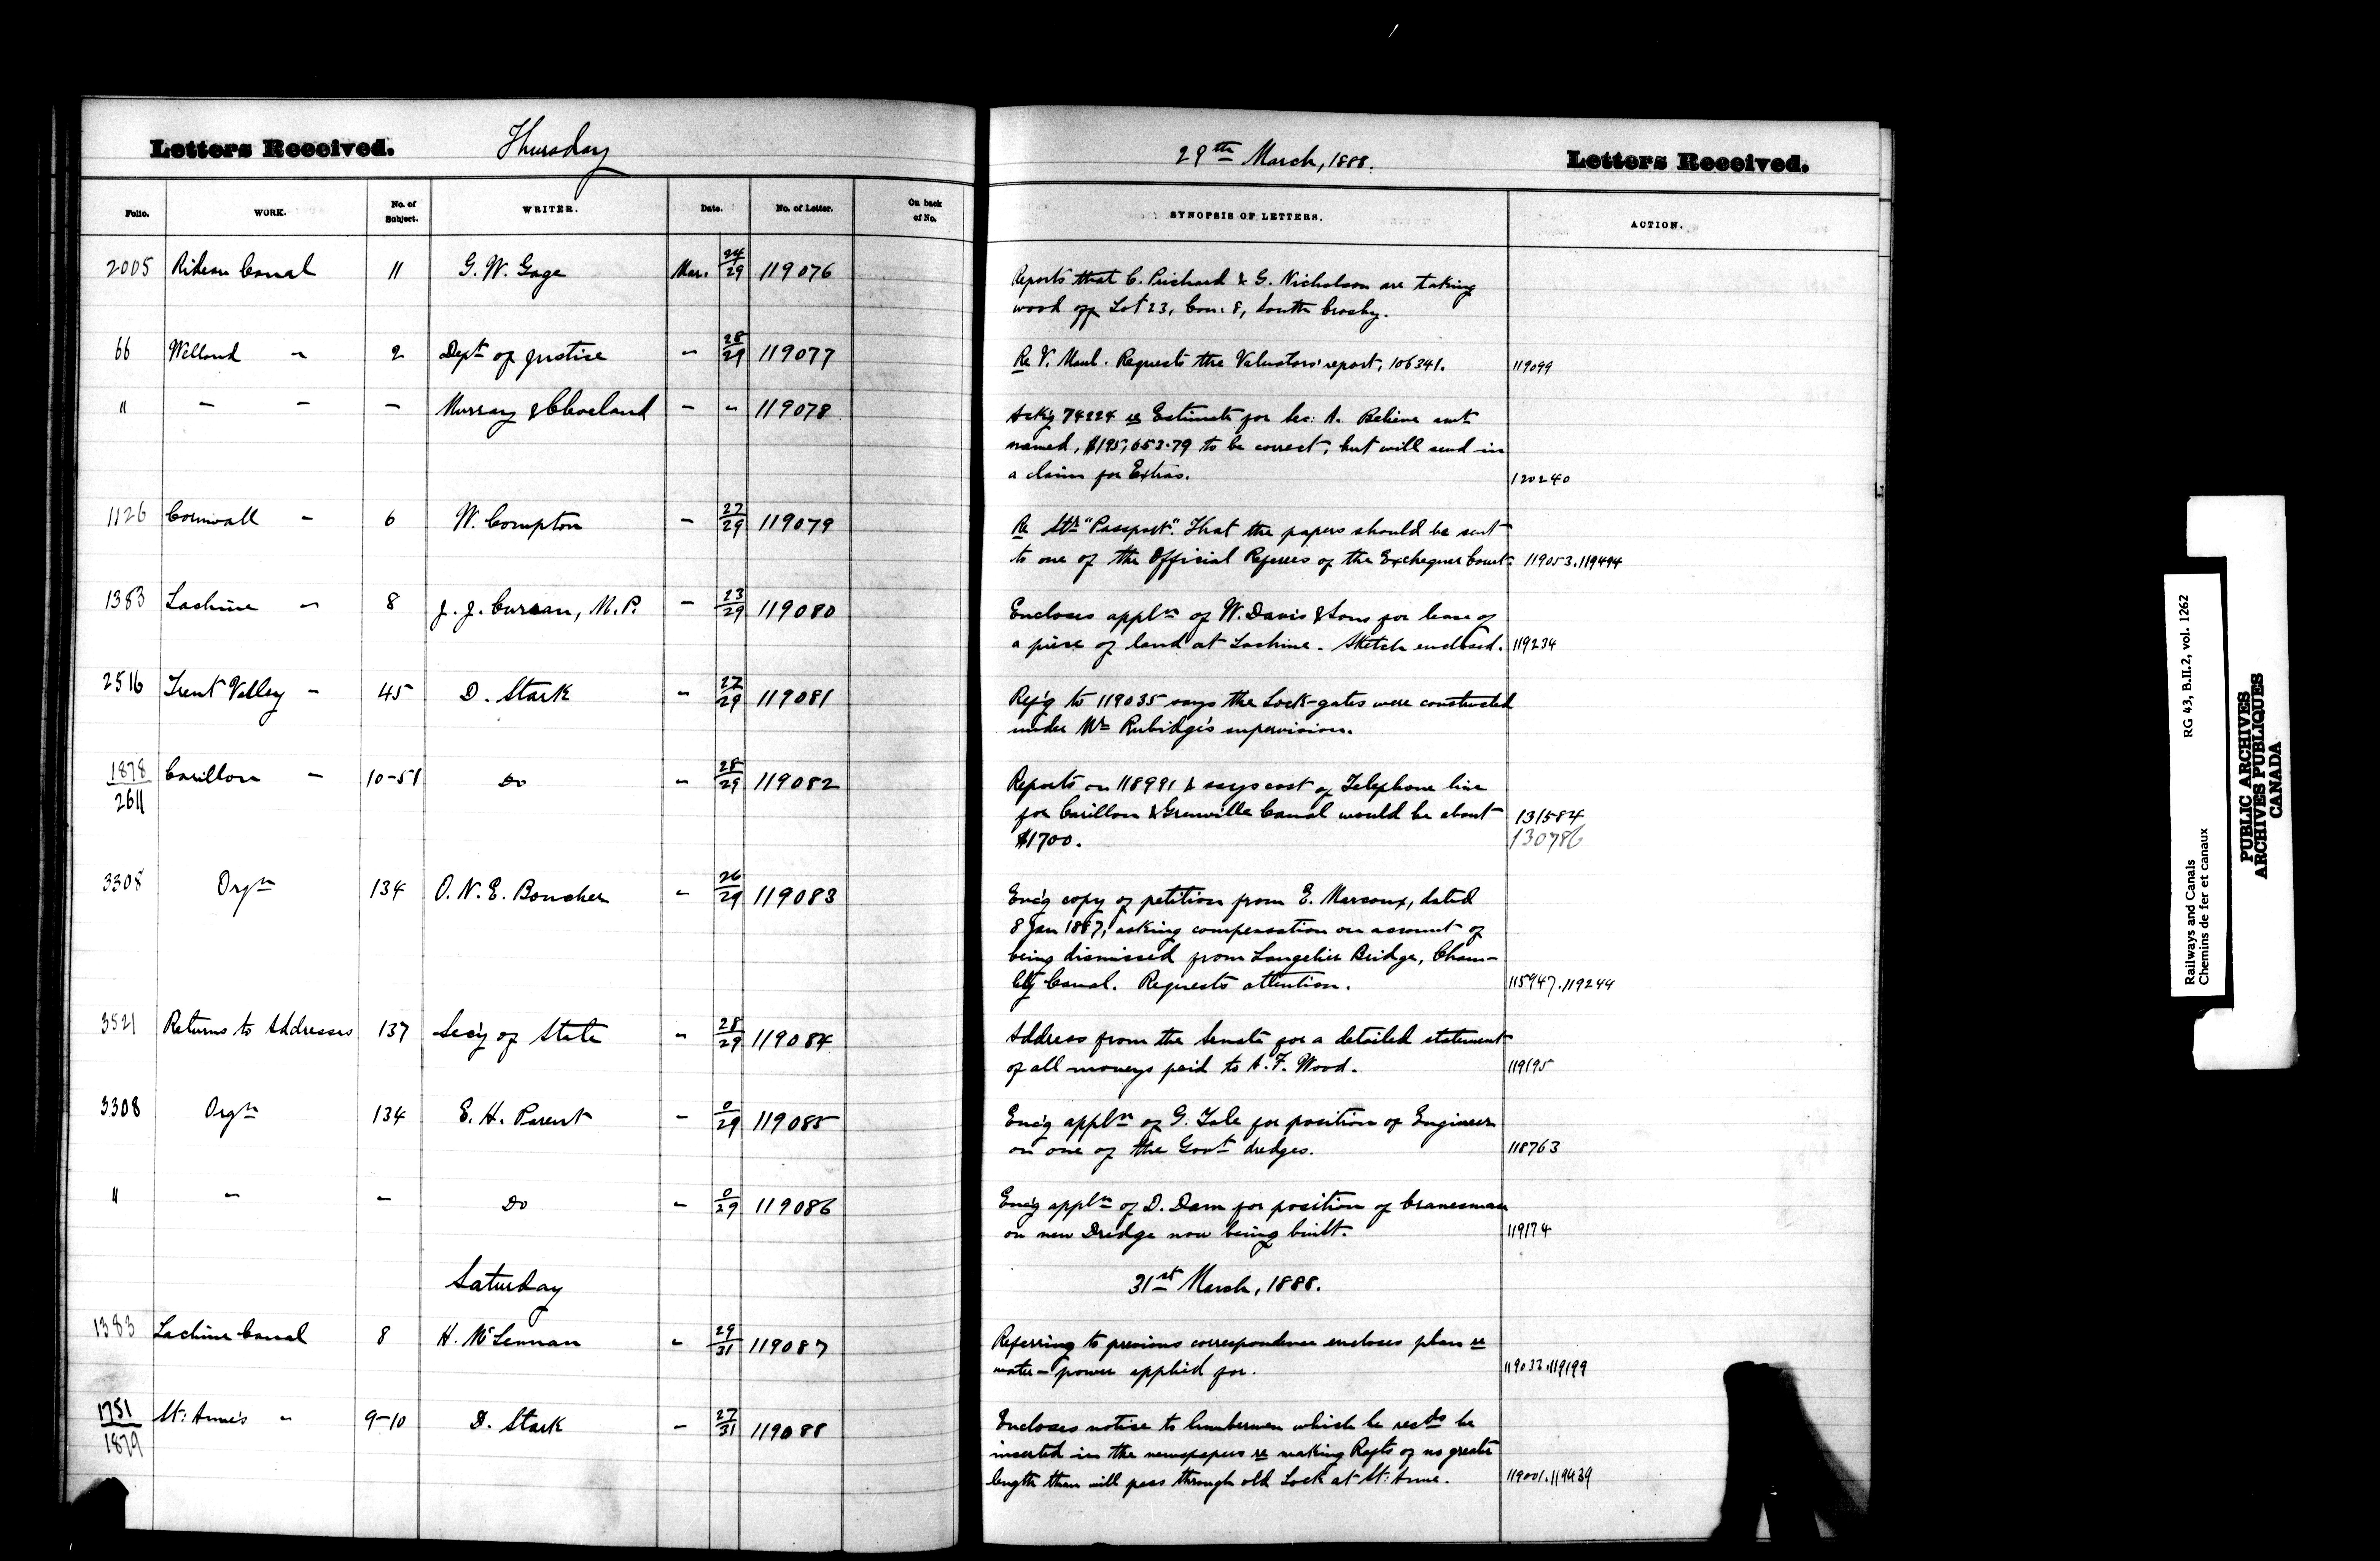 Letters Received.
Thursday
29th March, 1888.
Letters Received.
Folio. WORK. No. of Subject. WRITER. Date. No. of Letter. On back of No.
SYNOPSIS OF LETTERS. ACTION.
2005 Rideau Canal 11 G. W. Gage Mar. 24/29 119076
Reports that C. Prichard & G. Nicholson are taking
wood off Lot 23, Con: 8, South Crosby.
66 Welland " 2 Dept of Justice " 28/29 119077
Re V. Requests the Valuators' report, 106341. 119099
" " " " Murray & Cleveland " " 119078
Ack'g 74224 re Estimate for Sec: A. Believe amt
named, $195,653.79 to be correct, but will send in
a claim for Extras. 120240
1126 Cornwall " 6 W. Compton " 27/29 119079
Re Str "Passport". That the papers should be sent
to one of the Official Referees of the Exchequer Court. 119053.119494
1383 Lachine " 8 J. J. Curran, M.P. " 23/29 119080
Encloses appln of W. Davis & Sons for lease of
a piece of land at Lachine. Sketch enclosed. 119234
2516 Trent Valley " 45 D. Stark " 27/29 119081
Ref'g to 119035 says the Lock-gates were constructed
under Mr Rubidge's supervision.
1878/2611 Carillon " 10-51 Do " 28/29 119082
Reports on 118991 & says cost of Telephone line
for Carillon & Grenville Canal would be about 131584
$1700. 130786
3308 Orgn 134 O. N. E. Boucher " 26/29 119083
Enc'g copy of petition from E. Marcoux, dated
8 Jan 1887, asking compensation on account of
being dismissed from Langelier Bridge, Cham-
bly Canal. Requests attention. 115947.119244
3521 Returns to Addresses 137 Sec'y of State " 28/29 119084
Address from the Senate for a detailed statement
of all moneys paid to A. F. Wood. 119195
3308 Orgn 134 E. H. Parent " 0/29 119085
Enc'g appln of G. Tale for position of Engineer
on one of the Govt dredges. 118763
" " " Do " 0/29 119086
Enc'g appln of D. Dam for position of Cranesman
on new Dredge now being built. 119174
Saturday
31st March, 1888.
1383 Lachine Canal 8 H. McLennan " 29/31 119087
Referring to previous correspondence encloses plan re
water-power applied for. 119033.119199
1751/1879 St: Anne's " 9-10 D. Stark " 27/31 119088
Encloses notice to lumbermen which he recds be
inserted in the newspapers re making Rafts of no greater
length than will pass through old Lock at St: Anne. 119001.119439
Railways and Canals RG 43, B.II.2, vol. 1262
Chemins de fer et canaux
PUBLIC ARCHIVES
ARCHIVES PUBLIQUES
CANADA